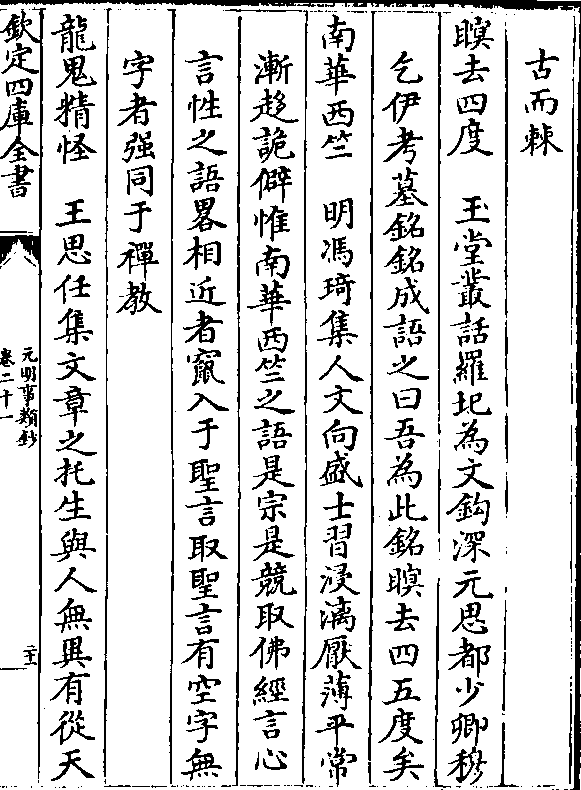 古而棘
瞑去四度　玉堂叢話羅圮為文鈎深元思都少卿穆
乞伊考墓銘銘成語之曰吾為此銘瞑去四五度矣
南華西竺　明馮琦集人文向盛士習浸漓厭薄平常
漸趍詭僻惟南華西竺之語是宗是競取佛經言心
言性之語畧相近者竄入于聖言取聖言有空字無
字者强同于禪教
龍鬼精怪　王思任集文章之托生與人無異有從天
欽定四庫全書
元明事類鈔
卷二十一
二十三